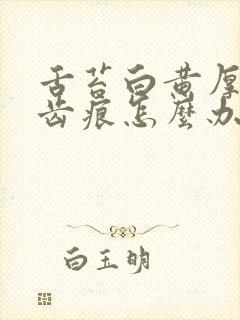 舌苔白黄厚
齿痕怎麽办
白玉明